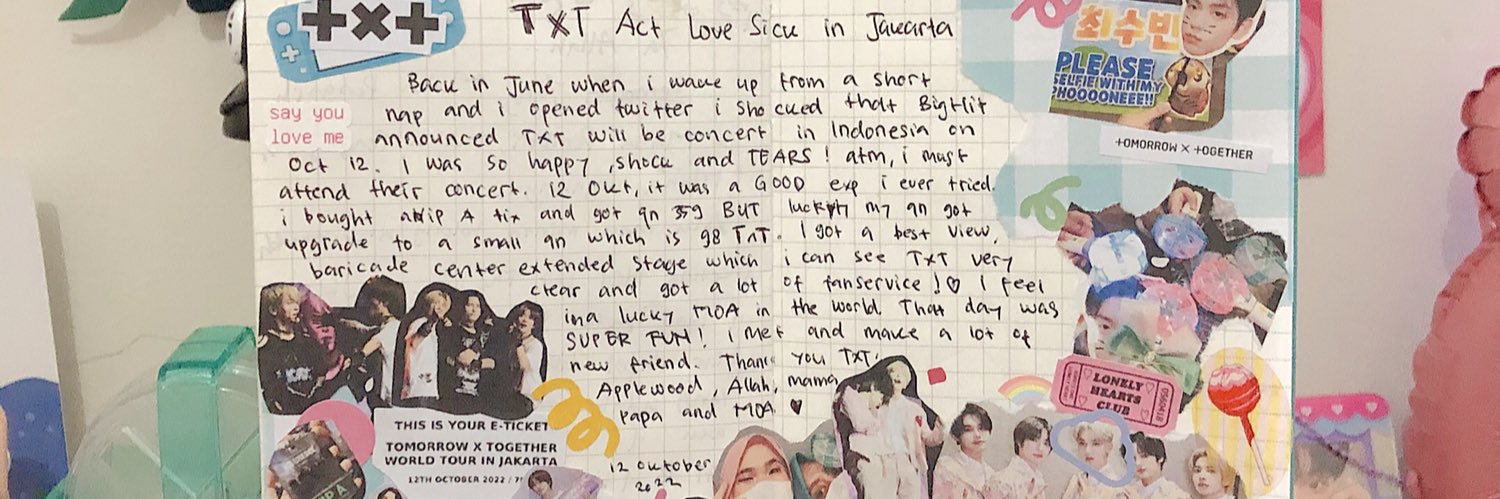 TXT Act Love Sick in Jakarta
Back in June when i wake up from a short
nap and i opened twitter i shocked that BigHit
announced TXT will be concert in Indonesia on
Oct 12. I was so happy, shock and TEARS! atm, i must
attend their concert. 12 Okt, it was a GOOD exp i ever tried.
i bought a vip A tix and got qn 359 BUT luckyly my qn got
upgrade to a small qn which is 98 TnT. I got a best view,
baricade center extended stage which i can see TXT very
clear and got a lot of fanservice!♡ I feel
ima lucky MOA in the world. That day was
SUPER FUN! i met and make a lot of
new friend. Thank you TXT,
Applewood, Allah, mama
papa and MOA ♥
12 october
2022
say you
love me
THIS IS YOUR E-TICKET
TOMORROW X TOGETHER
WORLD TOUR IN JAKARTA
12TH OCTOBER 2022 / 7
최수빈
PLEASE
SELFIE WITH MY
PHOOOONEEE!!
TOMORROW X TOGETHER
LONELY
HEARTS
CLUB